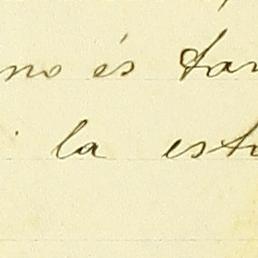 no és tan
la esti